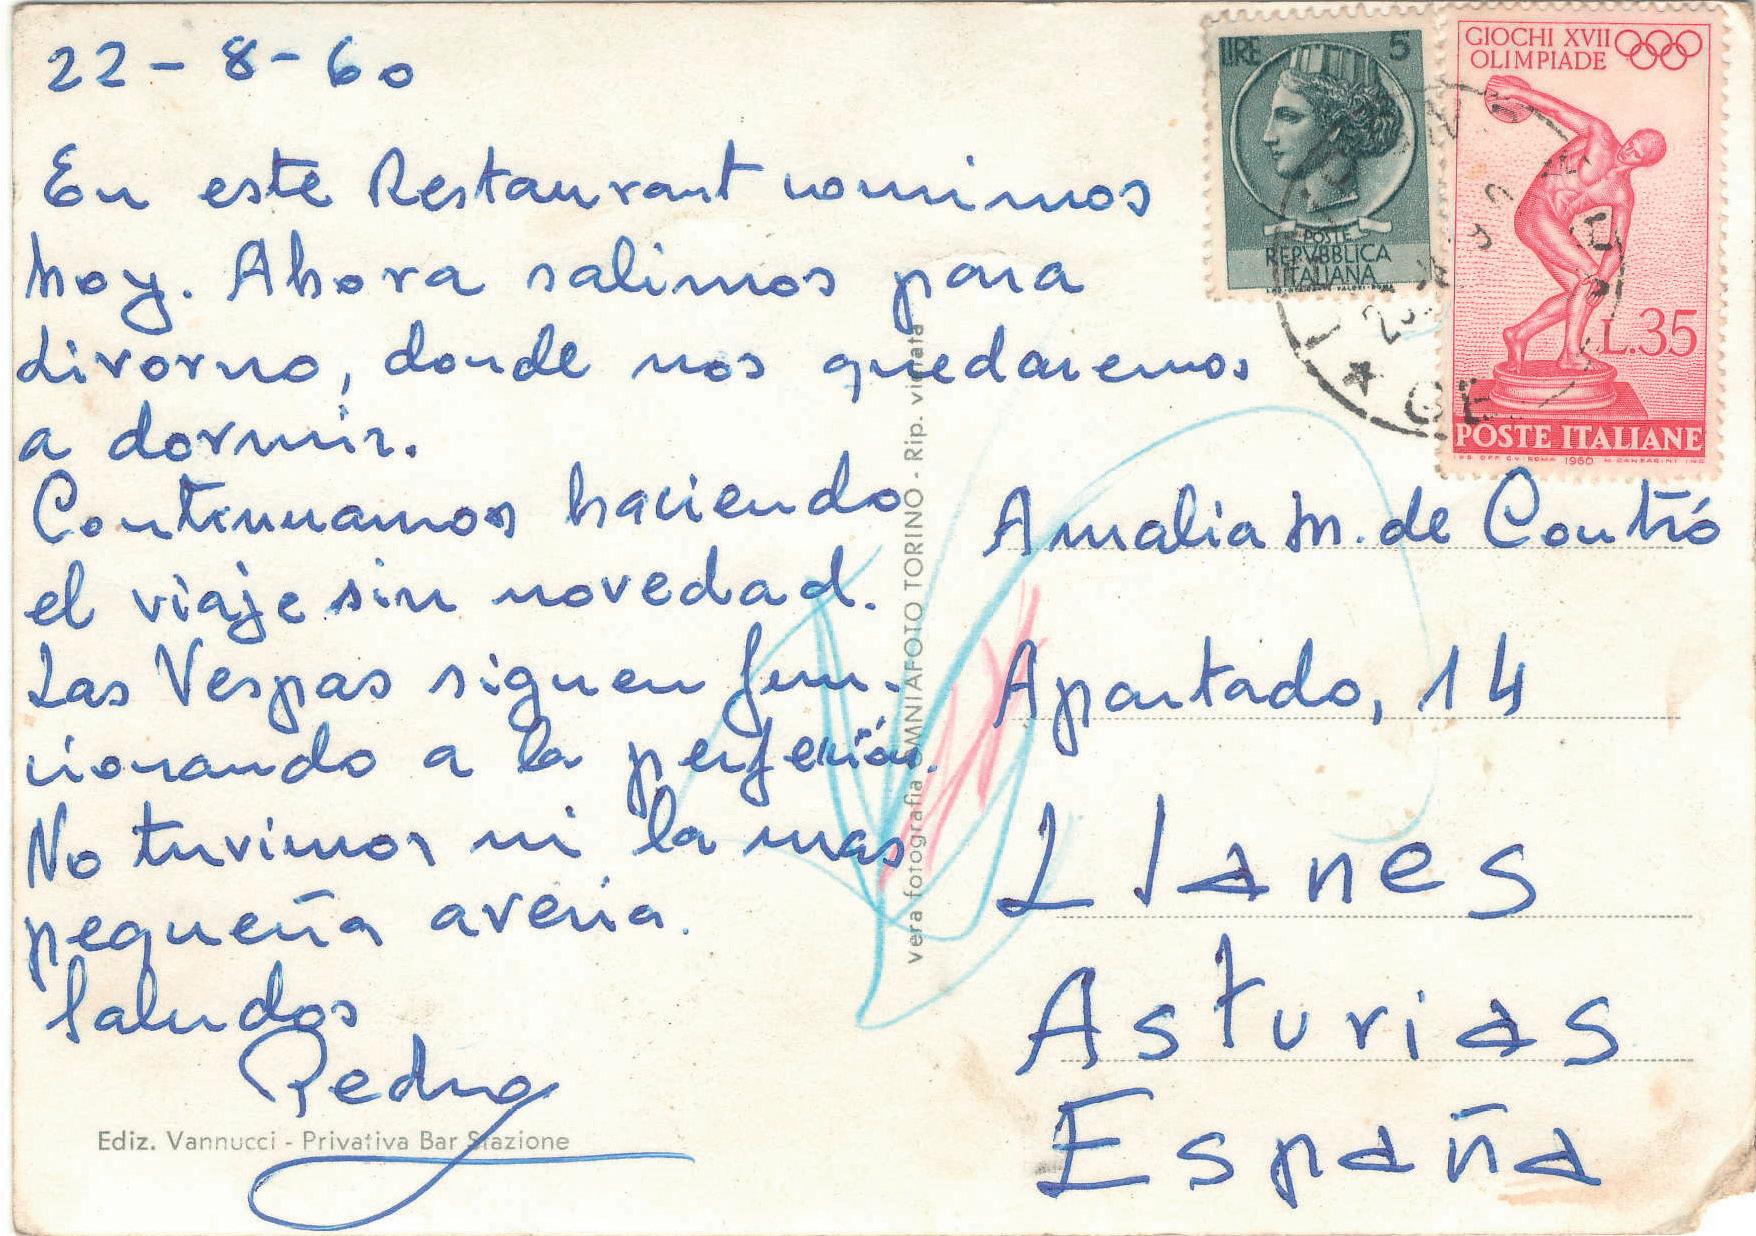 22-8-60
En este Restaurant comimos
hoy. Ahora salimos para
Livorno, donde nos quedaremos
a dormir.
Continuamos haciendo
el viaje sin novedad.
Las Vespas siguen fun-
cionando a la perfección.
No tuvimos ni la mas
pequeña avería.
Saludos
Pedro
Ediz. Vannucci - Privativa Bar Stazione
vera fotografia OMNIAFOTO TORINO - Rip. vietata
LIRE 5
POSTE
REPVBBLICA
ITALIANA
GIOCHI XVII
OLIMPIADE
L.35
POSTE ITALIANE
1960
Amalia M. de Contró
Apartado, 14
Llanes
Asturias
España